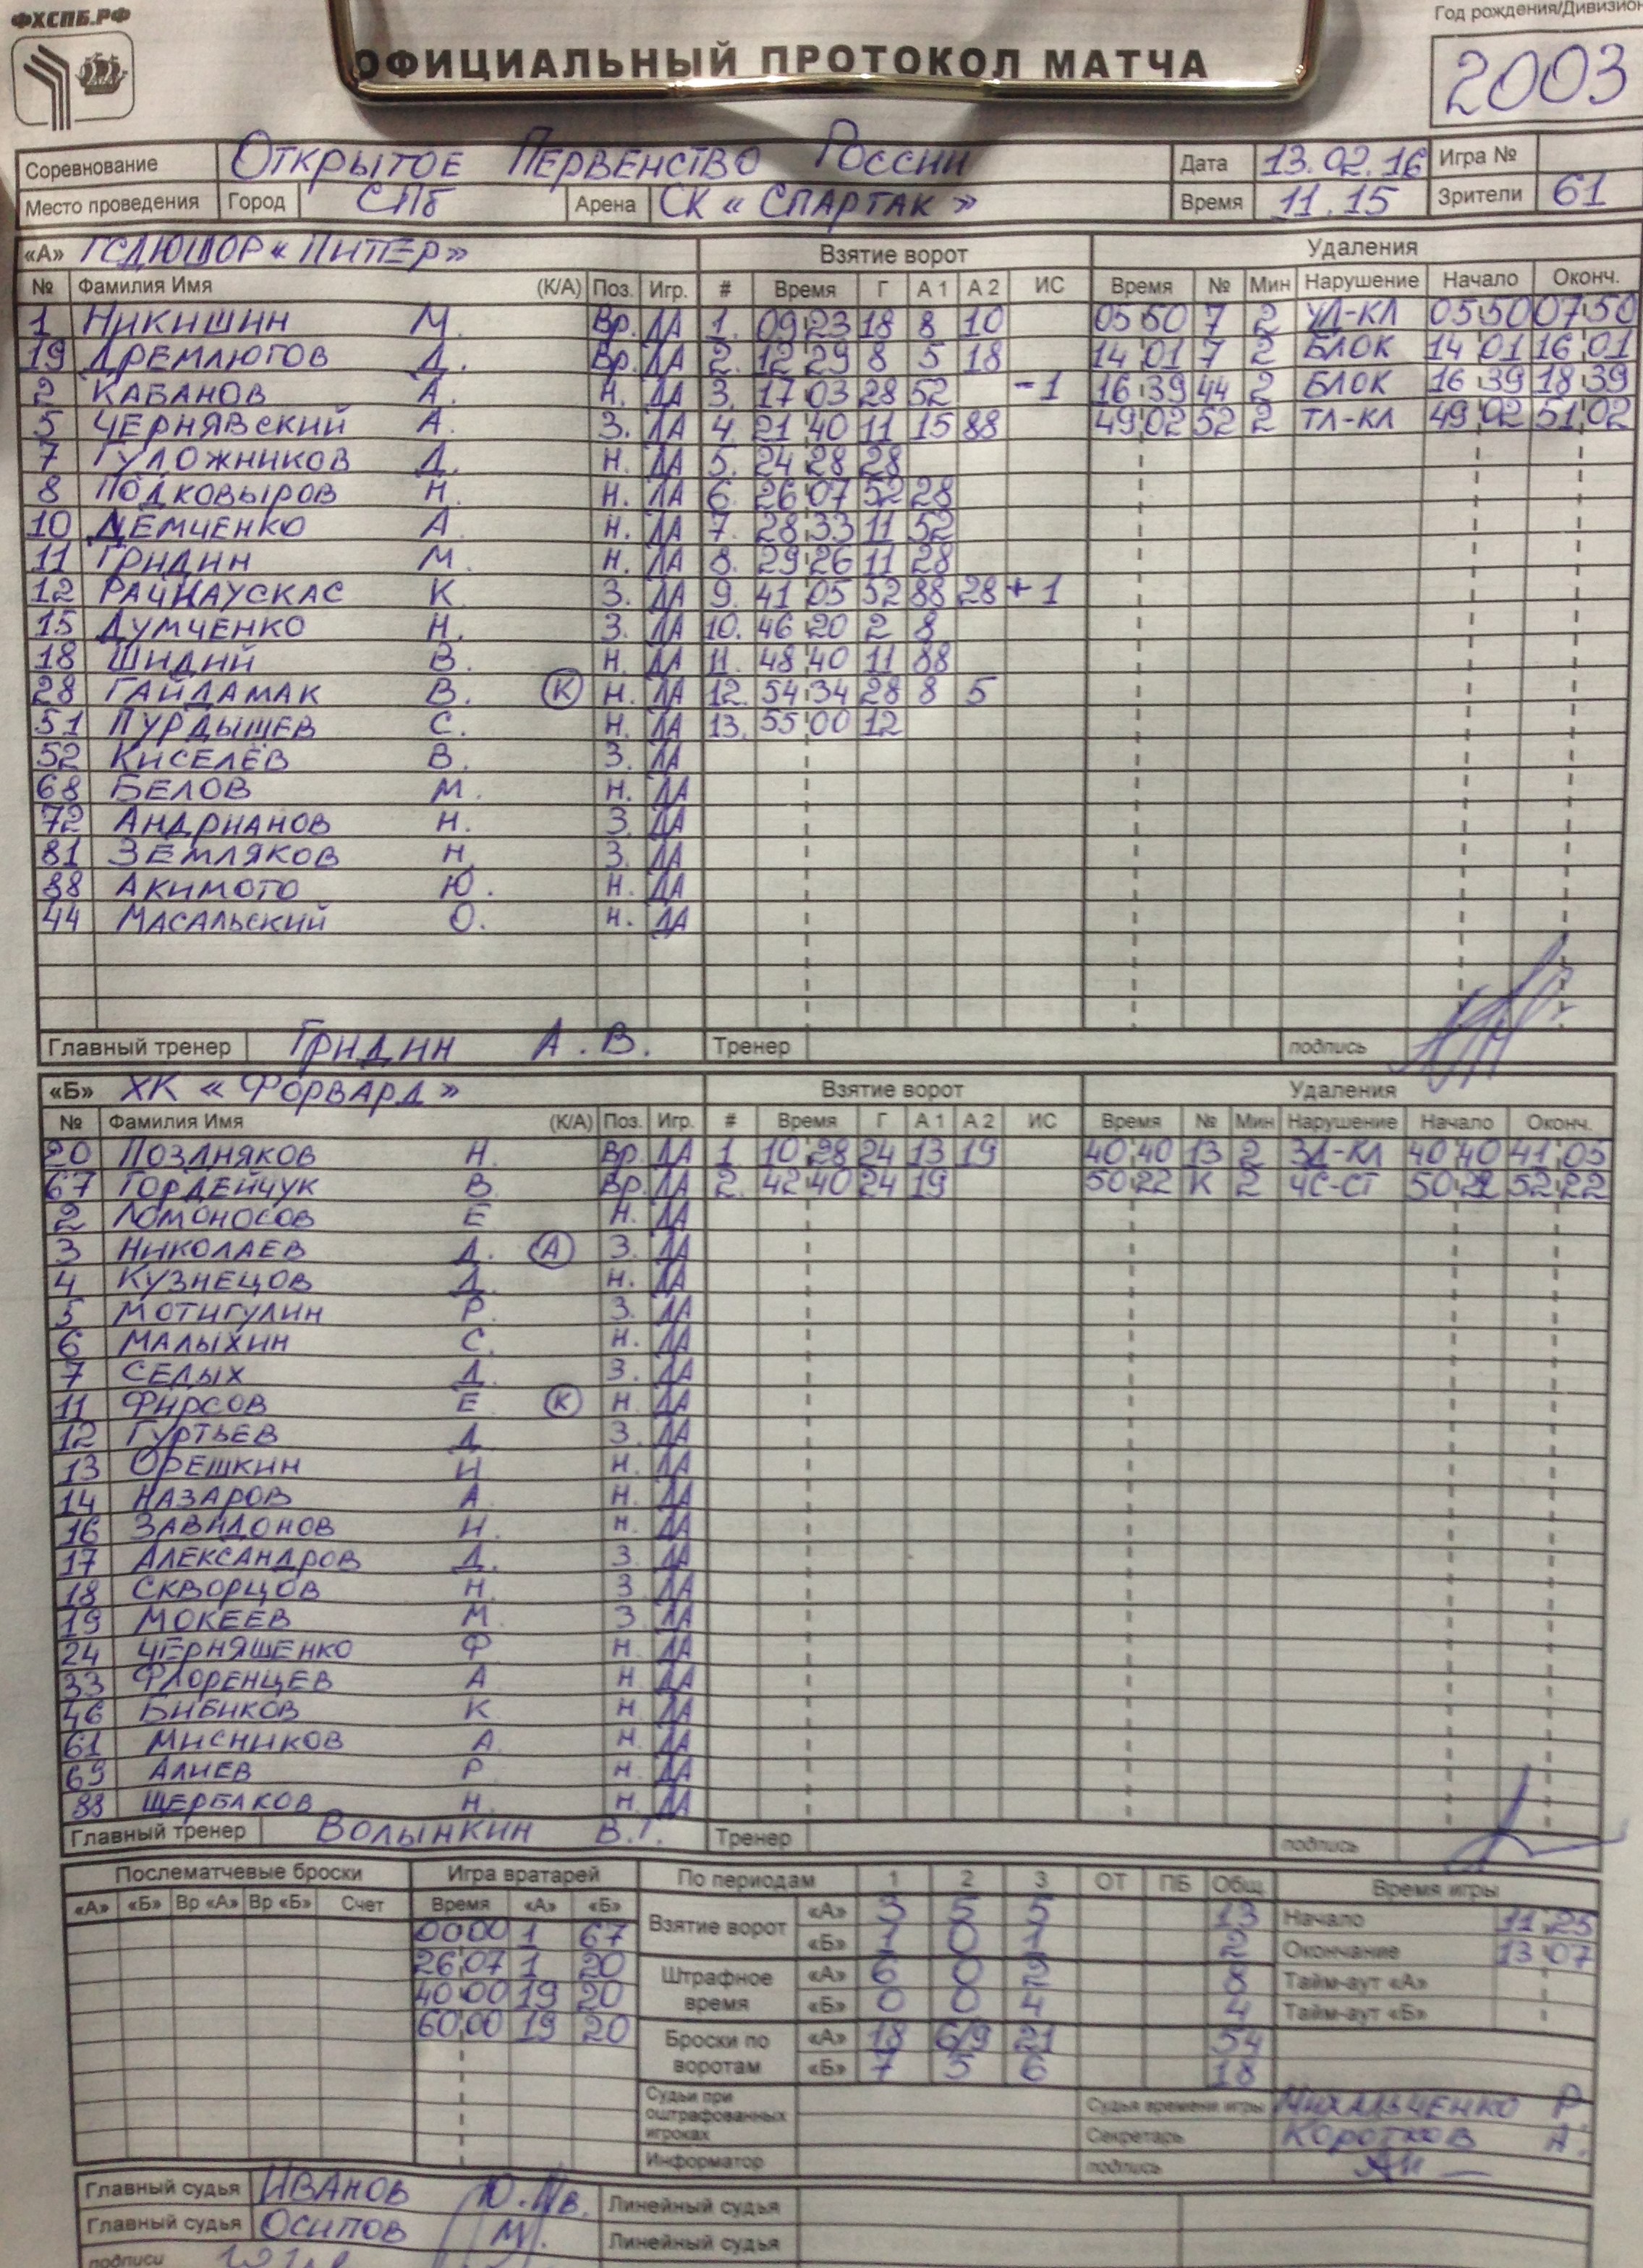 ФХСПБ.РФ
Год рождения/Дивизион
ОФИЦИАЛЬНЫЙ ПРОТОКОЛ МАТЧА
2003
Соревнование Открытое Первенство России Дата 13.02.16 Игра №
Место проведения Город СПб Арена СК «Спартак» Время 11.15 Зрители 61
«А» ГСДЮШОР «Питер» Взятие ворот Удаления
№ Фамилия Имя (К/А) Поз. Игр. # Время Г А 1 А 2 ИС Время № Мин Нарушение Начало Оконч.
1 Никишин М. Вр. ДА 1. 09 23 18 8 10 05 50 7 2 УД-КЛ 05 50 07 50
19 Дремлюгов Д. Вр. ДА 2. 12 29 8 5 18 14 01 7 2 БЛОК 14 01 16 01
2 Кабанов А. Н. ДА 3. 17 03 28 52 -1 16 39 44 2 БЛОК 16 39 18 39
5 Чернявский А. З. ДА 4. 21 40 11 15 88 49 02 52 2 ТЛ-КЛ 49 02 51 02
7 Гуложников Д. Н. ДА 5. 24 28 28
8 Подковыров Н. Н. ДА 6. 26 07 52 28
10 Демченко А. Н. ДА 7. 28 33 11 52
11 Гридин М. Н. ДА 8. 29 26 11 28
12 Рачкаускас К. З. ДА 9. 41 05 52 88 28 +1
15 Думченко Н. З. ДА 10. 46 20 2 8
18 Шидий В. Н. ДА 11. 48 40 11 88
28 Гайдамак В. К Н. ДА 12. 54 34 28 8 5
51 Пурдышев С. Н. ДА 13. 55 00 12
52 Киселёв В. З. ДА
68 Белов М. Н. ДА
72 Андрианов Н. З. ДА
81 Земляков Н. З. ДА
88 Акимото Ю. Н. ДА
44 Масальский О. Н. ДА
Главный тренер Гридин А.В. Тренер подпись
«Б» ХК «Форвард» Взятие ворот Удаления
№ Фамилия Имя (К/А) Поз. Игр. # Время Г А 1 А 2 ИС Время № Мин Нарушение Начало Оконч.
20 Поздняков Н. Вр. ДА 1 10 28 24 13 19 40 40 13 2 ЗД-КЛ 40 40 41 05
67 Гордейчук В. Вр. ДА 2. 42 40 24 19 50 22 К 2 ЧС-СТ 50 22 52 22
2 Ломоносов Е Н. ДА
3 Николаев Д. А З. ДА
4 Кузнецов Д. Н. ДА
5 Мотигулин Р. З. ДА
6 Малыхин С. Н. ДА
7 Седых Д. З. ДА
11 Фирсов Е К Н ДА
12 Гуртьев Д З. ДА
13 Орешкин И Н. ДА
14 Назаров А. Н. ДА
16 Завидонов Н. Н. ДА
17 Александров Д. З. ДА
18 Скворцов Н. З ДА
19 Мокеев М. З ДА
24 Черняшенко Ф Н. ДА
33 Флоренцев А Н ДА
46 Бибиков К Н ДА
61 Мисников А. Н. ДА
69 Алиев Р Н. ДА
88 Щербаков Н. Н. ДА
Главный тренер Волынкин В.Г. Тренер подпись
Послематчевые броски Игра вратарей По периодам 1 2 3 ОТ ПБ Общ Время игры
«А» «Б» Вр «А» Вр «Б» Счет Время «А» «Б»
Взятие ворот «А» 3 5 5 13 Начало 11 25
00 00 1 67 «Б» 1 0 1 2 Окончание 13 07
26 07 1 20 Штрафное время «А» 6 0 2 8 Тайм-аут «А»
40 00 19 20 «Б» 0 0 4 4 Тайм-аут «Б»
60 00 19 20 Броски по воротам «А» 18 6/9 21 54
«Б» 7 5 6 18
Судьи при оштрафованных игроках Судья времени игры Михальченко Р.
Секретарь Коротков А.
Информатор подпись
Главный судья Иванов Ю. Линейный судья
Главный судья Осипов М. Линейный судья
подписи